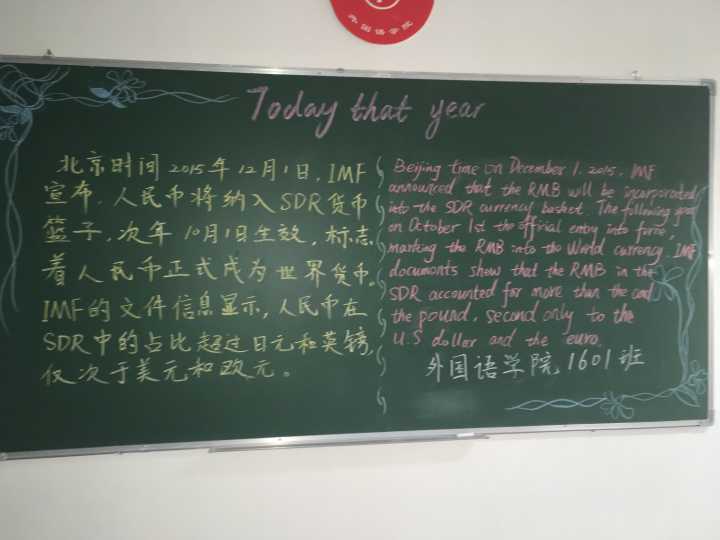 外国语学院
Today that year
北京时间2015年12月1日,IMF
宣布,人民币将纳入SDR货币
篮子,次年10月1日生效,标志
着人民币正式成为世界货币。
IMF的文件信息显示,人民币在
SDR中的占比超过日元和英镑,
仅次于美元和欧元。
Beijing time on December 1. 2015, IMF
announced that the RMB will be incorporated
into the SDR currency basket. The following year
on October 1st the official entry into force,
marking the RMB into the World currency. IMF
documents show that the RMB in the
SDR accounted for more than the and
the pound, second only to the
U.S dollar and the euro.
外国语学院1601班